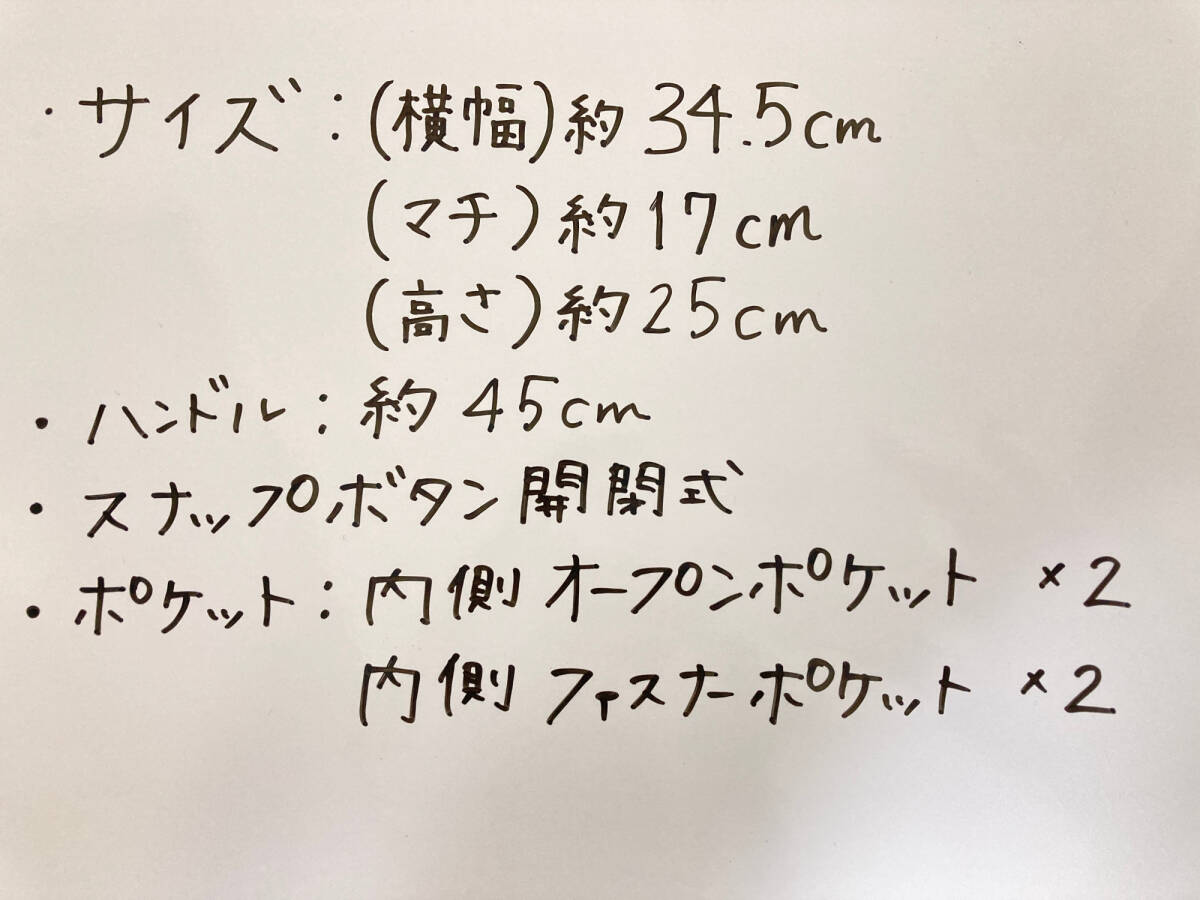 ・サイズ:(横幅)約34.5cm
(マチ)約17cm
(高さ)約25cm
・ハンドル:約45cm
・スナップボタン開閉式
・ポケット:内側 オープンポケット ×2
内側 ファスナーポケット ×2